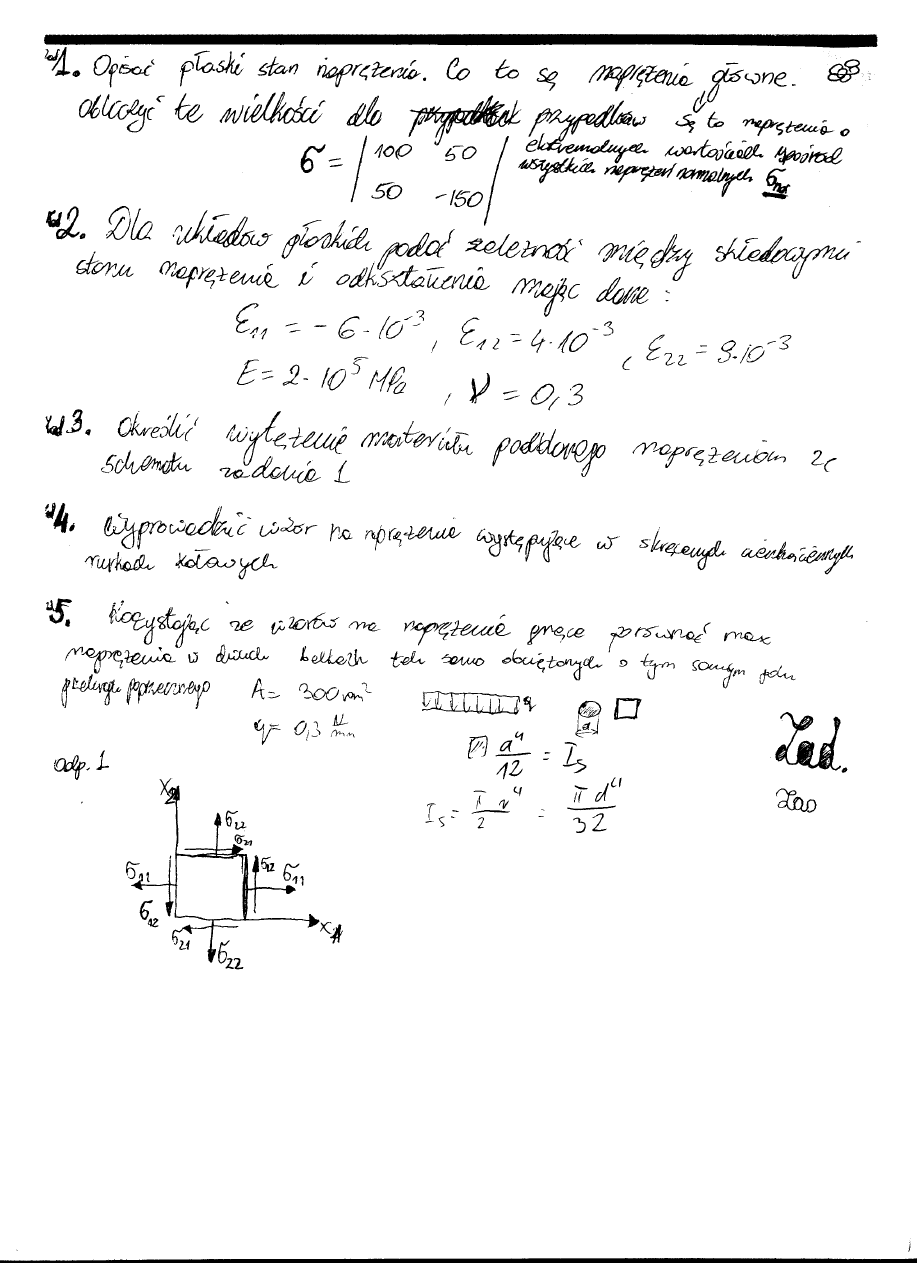 zad 1. Opisać płaski stan naprężenia. Co to są naprężenia główne.
obliczyć te wielkości dla przypadków są to naprężenia o
ekstremalnych wartościach spośród
wszystkich naprężeń normalnych σ
σ = | 100 50 |
| 50 -150 |
zad 2. Dla układów płaskich podać zależność między składowymi
stanu naprężenia i odkształcenia mając dane :
ε11 = - 6·10^-3 , ε12 = 4·10^-3 , ε22 = 9·10^-3
E = 2·10^5 MPa , ν = 0,3
zad 3. Określić wytężenie materiału poddanego naprężeniom ze
schematu zadania 1
zad 4. Wyprowadzić wzór na naprężenie występujące w skręcanych cienkościennych
rurkach kołowych
zad 5. Kożystając ze wzorów na naprężenie gnące porównać max
naprężenia w dwuch belkach tak samo obciętonych o tym samym polu
przekroju poprzecznego A = 300 mm² q
q = 0,3 N/mm a
a^4/12 = Is
Is = π r^4/2 = π d^4/32
Zad.
Zad
Odp. 1
X2
σ22
σ21
σ12
σ11 σ11
σ12
X1
σ21
σ22